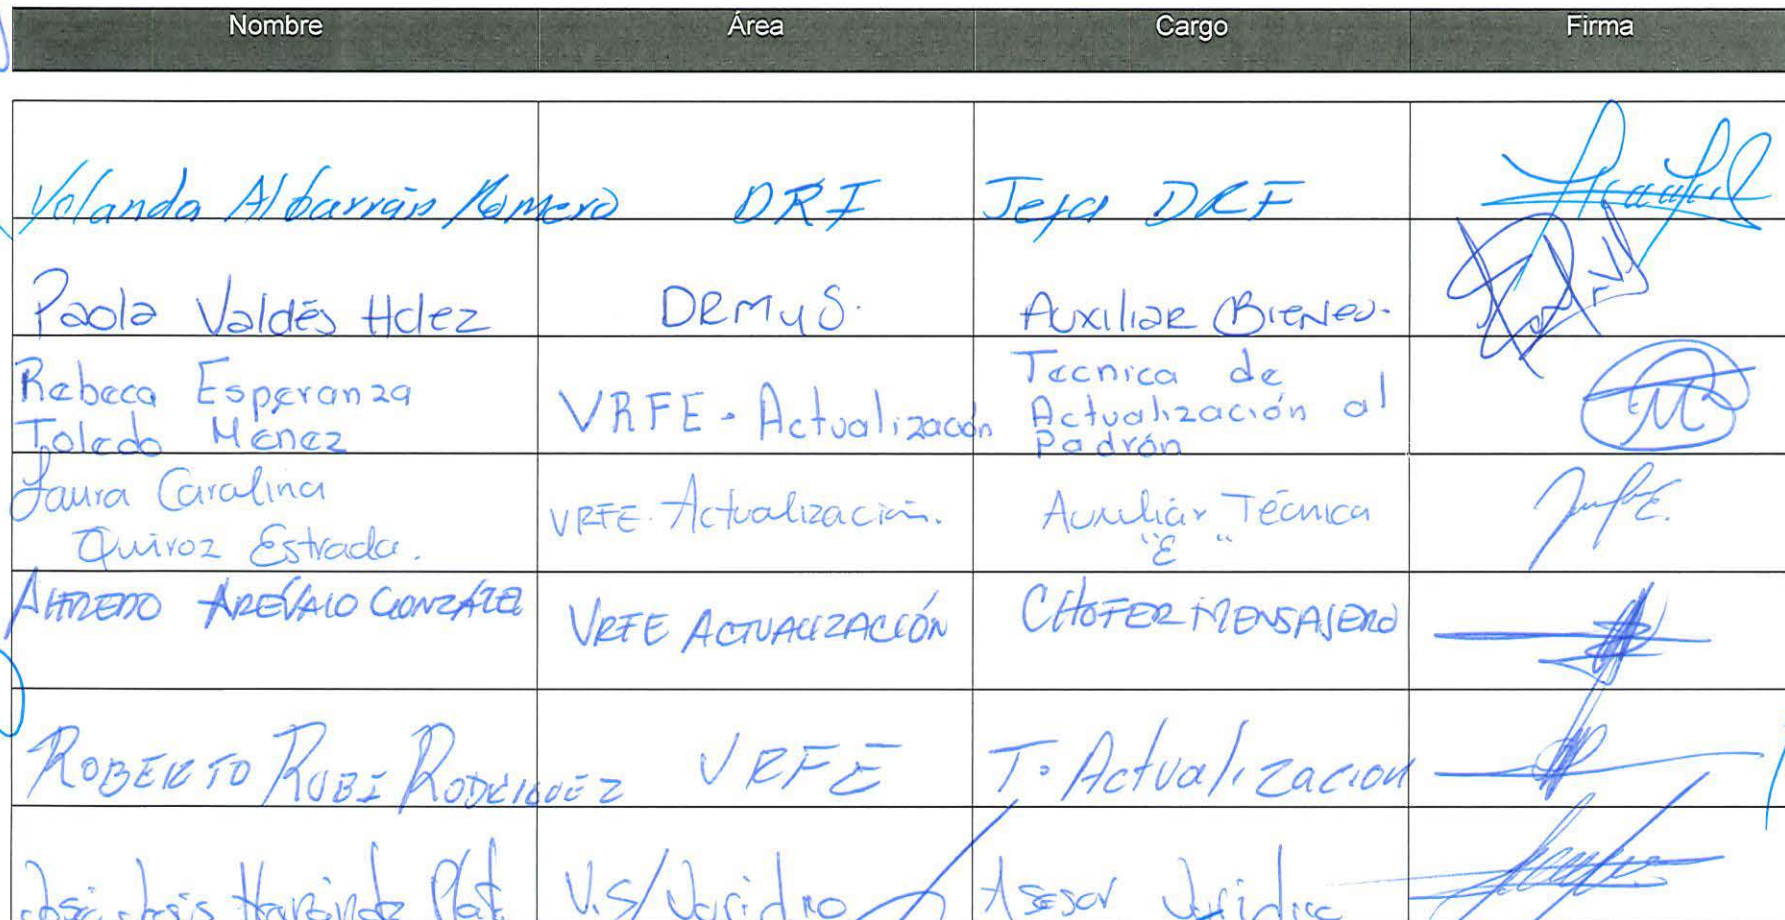 Nombre Área Cargo Firma
Yolanda Albarrán Romero DRF Jefa DRF
Paola Valdés Hdez DRMyS. Auxiliar Bienes.
Rebeca Esperanza
Toledo Menez
VRFE - Actualización
Tecnica de
Actualización al
Padrón
Laura Caralina
Quiroz Estrada.
VRFE. Actualización.
Auxiliar Técnica
"E"
ALFREDO ARÉVALO GONZÁLEZ VRFE ACTUALIZACIÓN CHOFER MENSAJERO
ROBERTO RUBI RODRIGUEZ VRFE T. Actualizacion
José Jesús Hernández V.S/Juridico Asesor Juridico